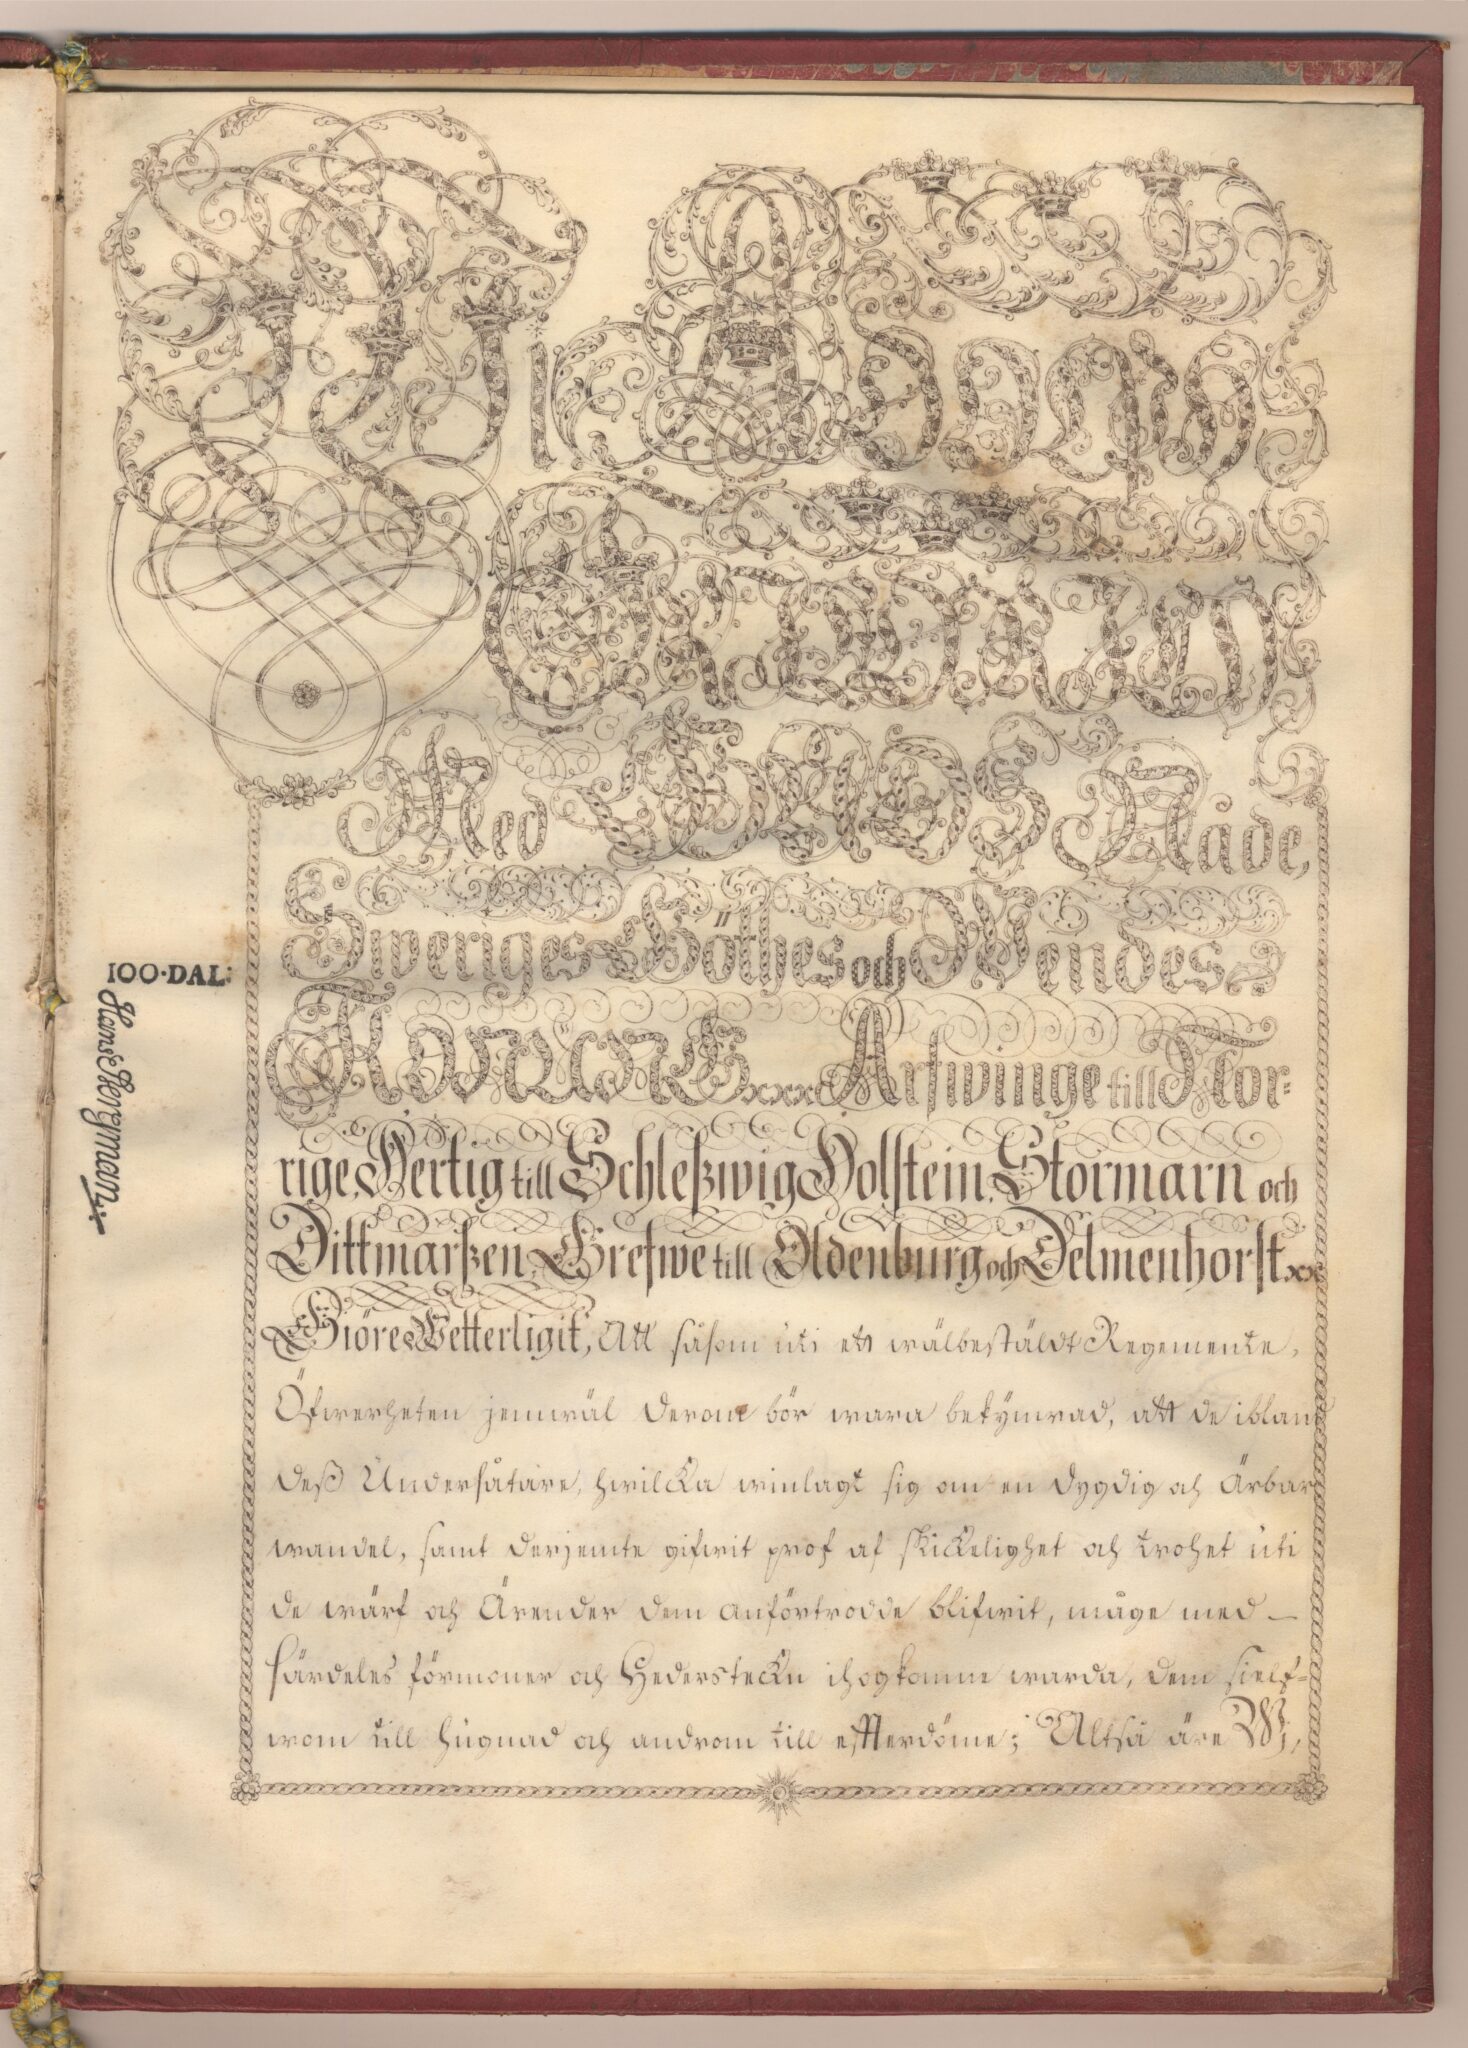 Wi Adolph
Friedrich
Med Guds Nåde,
Sweriges Göthes och Wendes
Konung xxx Arfwinge till Nor=
rige, Hertig till Schleßwig Holstein, Stormarn och
Dittmarßen, Grefwe till Oldenburg och Delmenhorst xx
Giöre Wetterligit, Att såsom uti ett wälbestäldt Regemente,
Öfwerheten jemwäl derom bör wara bekymrad, att de ibland
deß Undersåtare, hwilcka winlagt sig om en dygdig och Ärbar
wandel, samt derjemte gifwit prof af skickelighet och trohet uti
de wärf och Ärender dem anförtrodde blifwit, måge med –
särdeles förmoner och Hedersteckn ihogkomne warda, dem sielf=
wom till hugnad och androm till efterdöme; Altså äre Wj,
100·DAL:
Hans Bergman